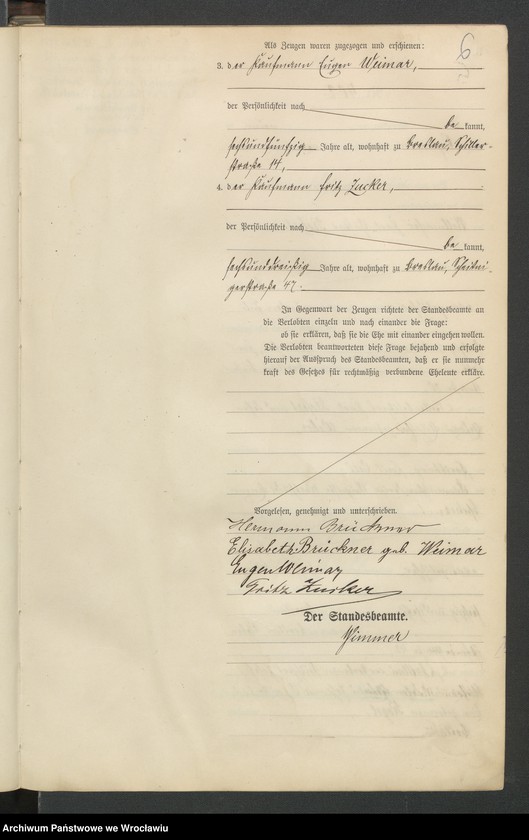 6
Als Zeugen waren zugezogen und erschienen:
3. der Kaufmann Eugen Weimar,
der Persönlichkeit nach
be kannt,
sechsundfünfzig Jahre alt, wohnhaft zu Breslau, Schiller-
straße 14,
4. der Kaufmann Fritz
der Persönlichkeit nach
be kannt,
sechsunddreißig Jahre alt, wohnhaft zu Breslau, Scheitni-
gerstraße 47.
In Gegenwart der Zeugen richtete der Standesbeamte an
die Verlobten einzeln und nach einander die Frage:
ob sie erklären, daß sie die Ehe mit einander eingehen wollen.
Die Verlobten beantworteten diese Frage bejahend und erfolgte
hierauf der Ausspruch des Standesbeamten, daß er sie nunmehr
kraft des Gesetzes für rechtmäßig verbundene Eheleute erkläre.
Vorgelesen, genehmigt und unterschrieben.
Hermann Brückner
Elisabeth Brückner geb. Weimar
Eugen Weimar
Fritz
Der Standesbeamte.
Wimmer
Archiwum Państwowe we Wrocławiu